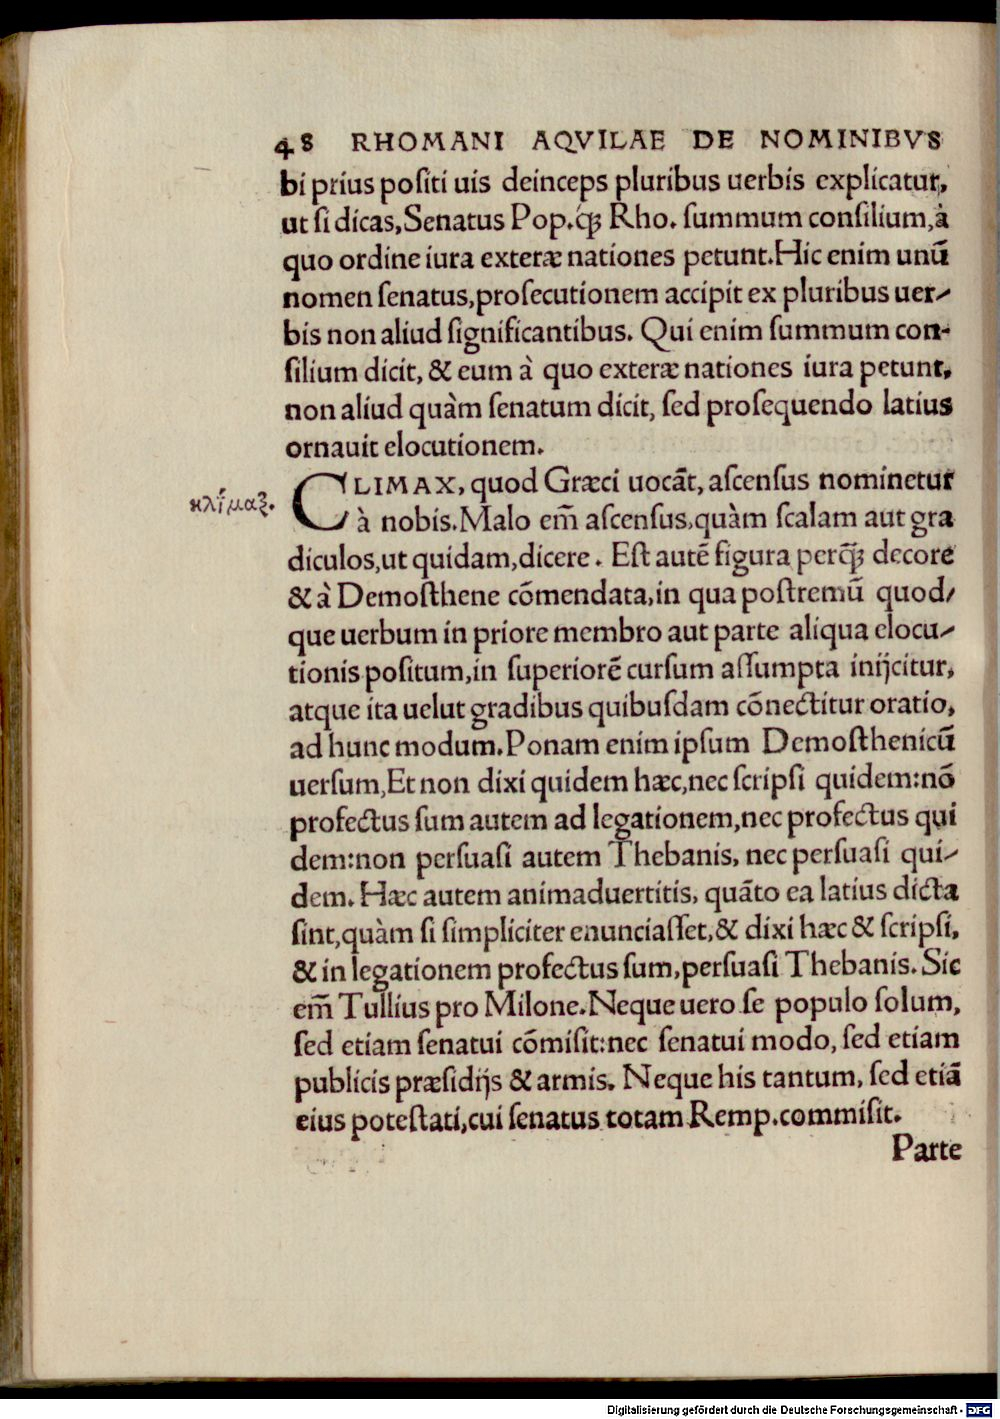 48 RHOMANI AQVILAE DE NOMINIBVS
bi prius positi uis deinceps pluribus uerbis explicatur,
ut si dicas, Senatus Pop.q́ꝫ Rho. summum consilium, à
quo ordine iura exteræ nationes petunt. Hic enim unū
nomen senatus, prosecutionem accipit ex pluribus uer-
bis non aliud significantibus. Qui enim summum con-
silium dicit, & eum à quo exteræ nationes iura petunt,
non aliud quàm senatum dicit, sed prosequendo latius
ornauit elocutionem.
κλίμαξ.
CLIMAX, quod Græci uocāt, ascensus nominetur
à nobis. Malo em̄ ascensus, quàm scalam aut gra
diculos, ut quidam, dicere. Est autē figura perq̄ꝫ decore
& à Demosthene cōmendata, in qua postremū quod-
que uerbum in priore membro aut parte aliqua elocu-
tionis positum, in superiorē cursum assumpta inijcitur,
atque ita uelut gradibus quibusdam cōnectitur oratio,
ad hunc modum. Ponam enim ipsum Demosthenicū
uersum, Et non dixi quidem hæc, nec scripsi quidem: nō
profectus sum autem ad legationem, nec profectus qui
dem: non persuasi autem Thebanis, nec persuasi qui-
dem. Hæc autem animaduertitis, quāto ea latius dicta
sint, quàm si simpliciter enunciasset, & dixi hæc & scripsi,
& in legationem profectus sum, persuasi Thebanis. Sic
em̄ Tullius pro Milone. Neque uero se populo solum,
sed etiam senatui cōmisit: nec senatui modo, sed etiam
publicis præsidijs & armis. Neque his tantum, sed etiā
eius potestati, cui senatus totam Remp. commisit.
Parte
Digitalisierung gefördert durch die Deutsche Forschungsgemeinschaft - DFG